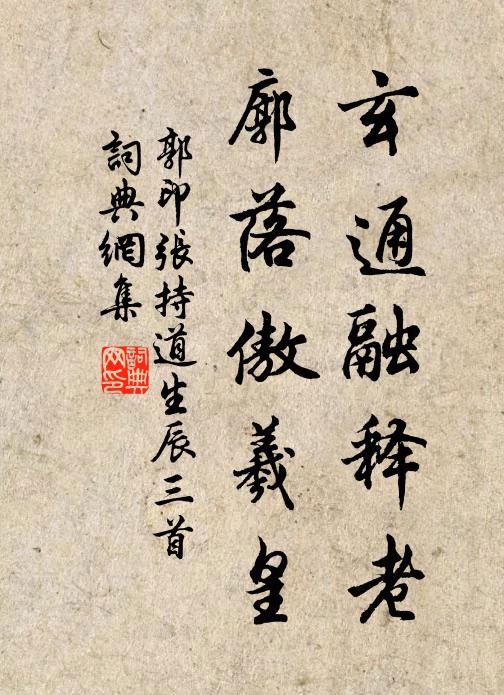 玄通融释老
廓落傲羲皇
郭印張持道生辰三首
詞典網集
詞典
网印